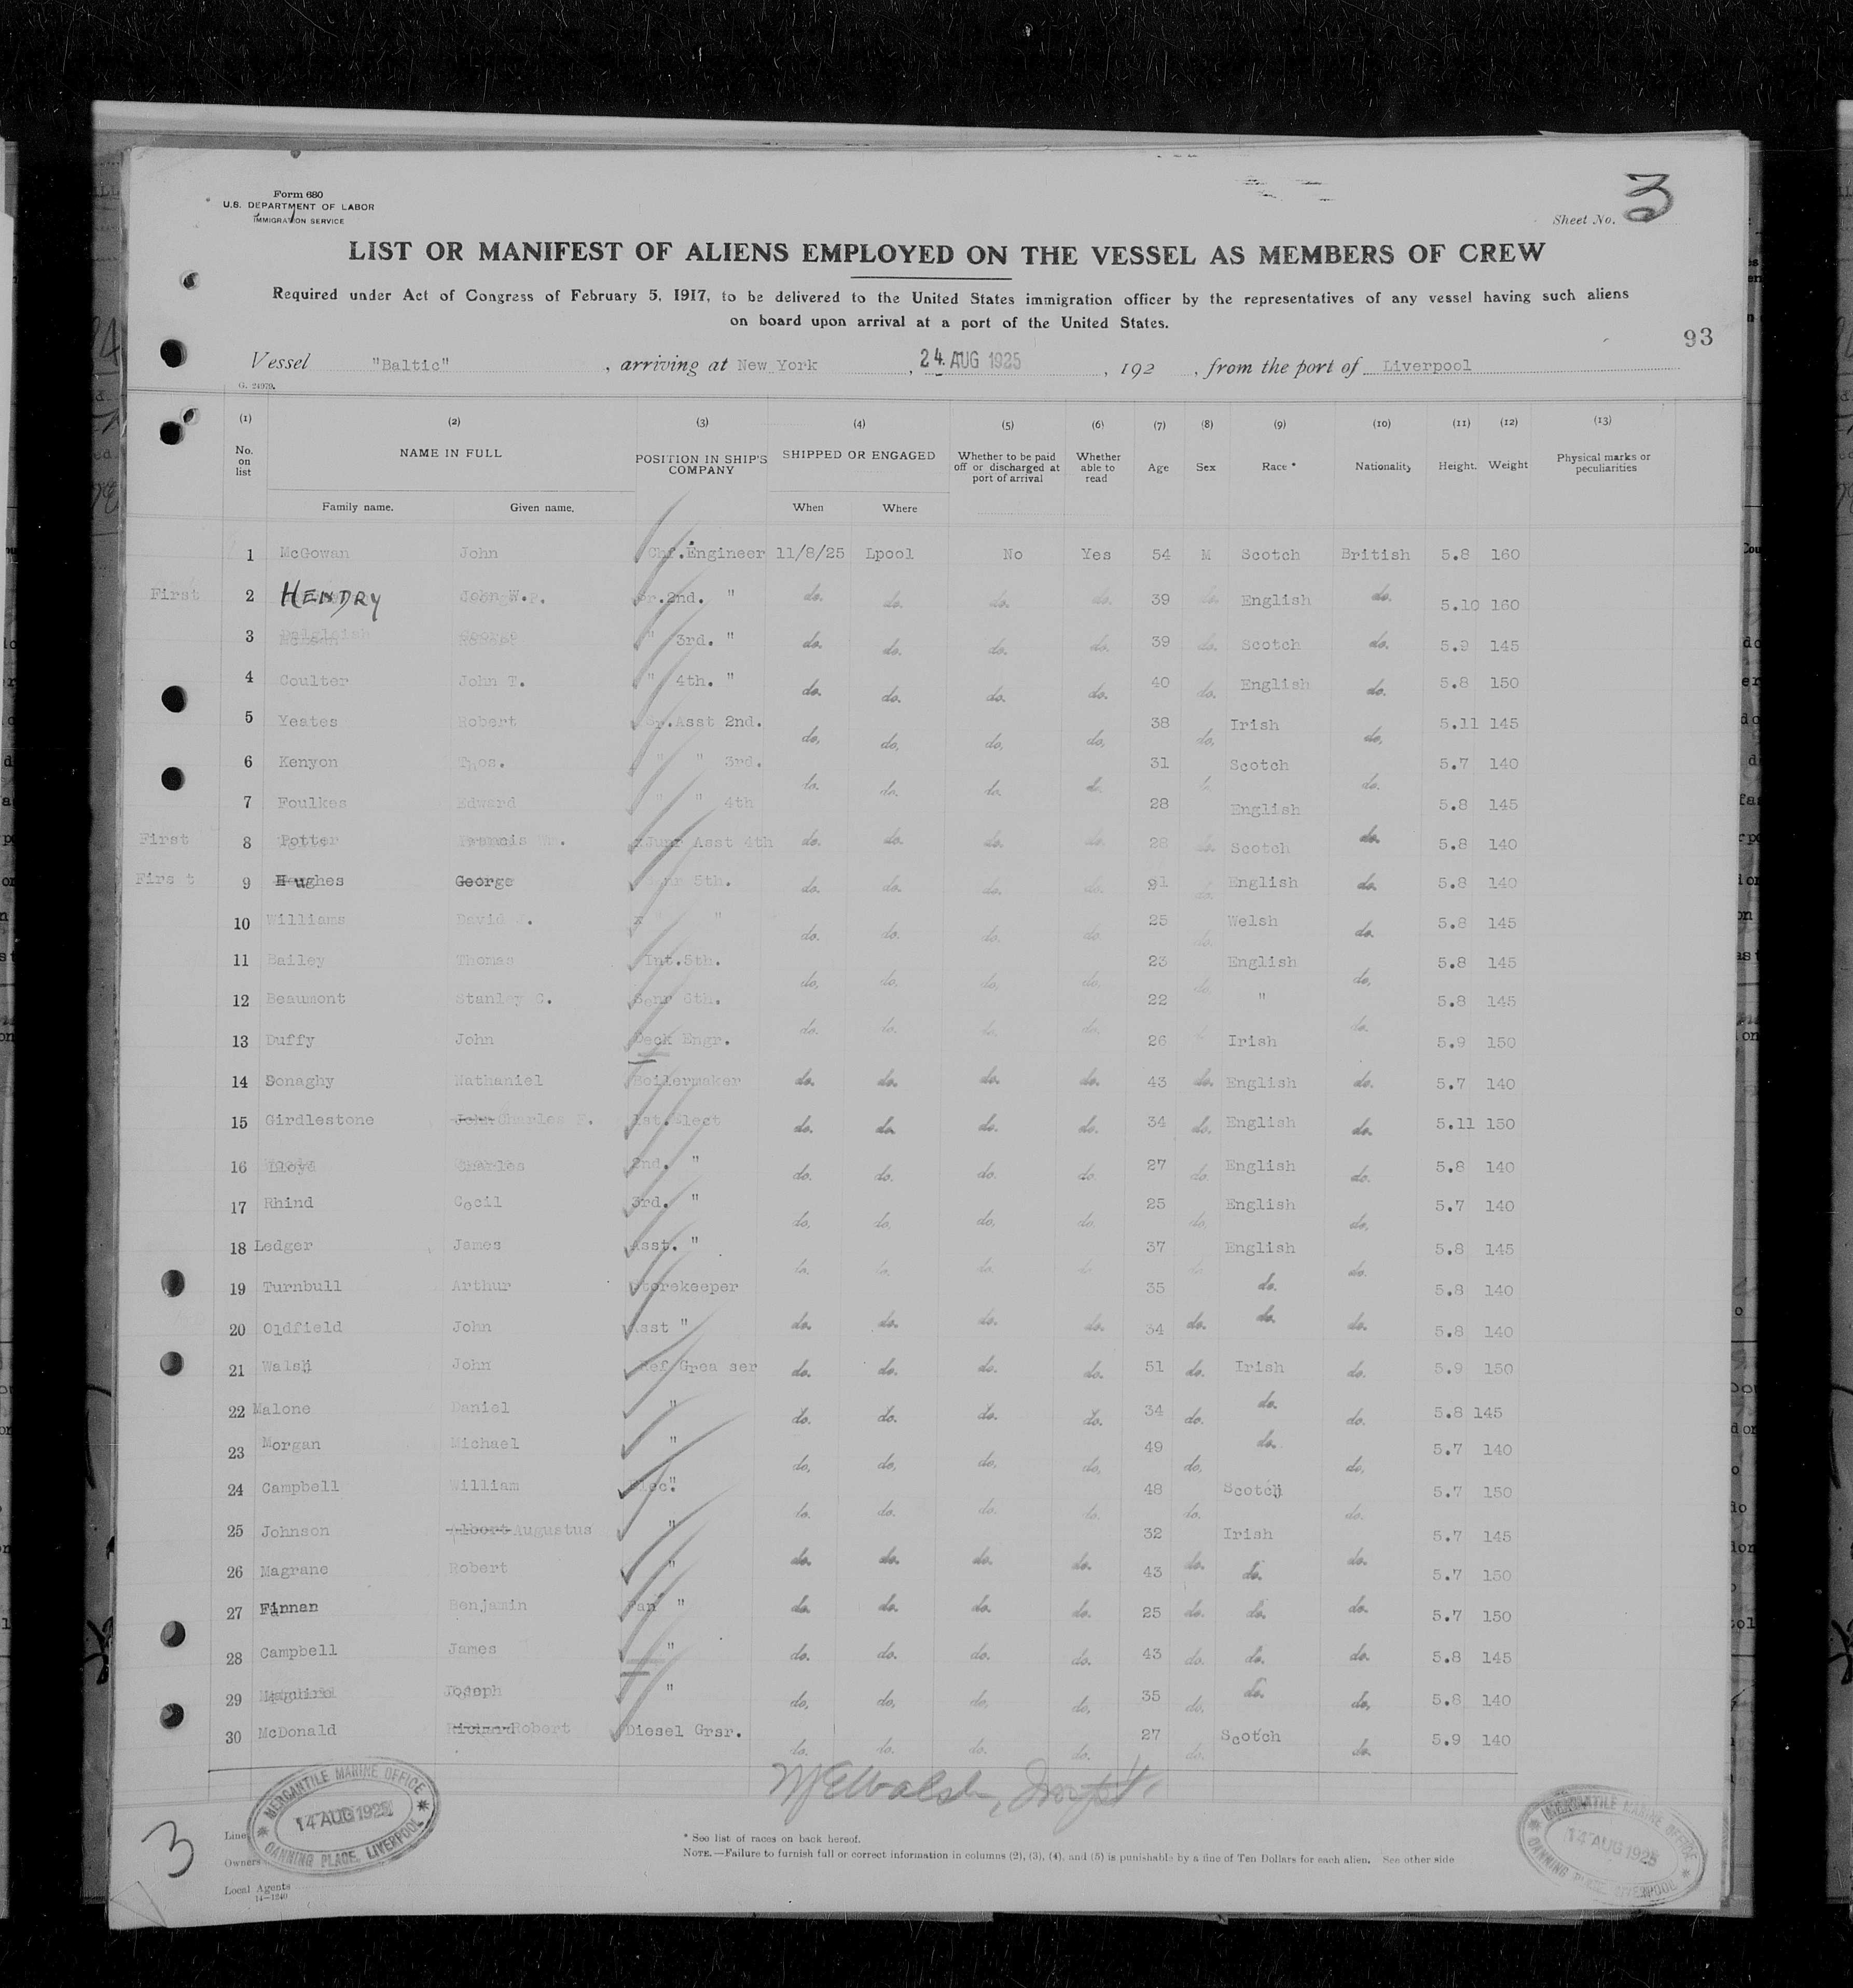 Form 680
U.S. DEPARTMENT OF LABOR
IMMIGRATION SERVICE
Sheet No. 3
LIST OR MANIFEST OF ALIENS EMPLOYED ON THE VESSEL AS MEMBERS OF CREW
Required under Act of Congress of February 5, 1917, to be delivered to the United States immigration officer by the representatives of any vessel having such aliens
on board upon arrival at a port of the United States.
93
Vessel "Baltic" , arriving at New York , 24 AUG 1925 , 192 , from the port of Liverpool
G. 24979.
(1) (2) (3) (4) (5) (6) (7) (8) (9) (10) (11) (12) (13)
No. on list NAME IN FULL POSITION IN SHIP'S COMPANY SHIPPED OR ENGAGED Whether to be paid off or discharged at port of arrival Whether able to read Age Sex Race * Nationality Height. Weight Physical marks or peculiarities
Family name. Given name. When Where
1 McGowan John Chf.Engineer 11/8/25 Lpool No Yes 54 M Scotch British 5.8 160
First 2 HENDRY John W. Sr.2nd. " do. do. do. do. 39 do. English do. 5.10 160
3 " 3rd. " do. do. do. do. 39 do. Scotch do. 5.9 145
4 Coulter John T. " 4th. " do. do. do. do. 40 do. English do. 5.8 150
5 Yeates Robert Sr.Asst 2nd. do. do. do. do. 38 do. Irish do. 5.11 145
6 Kenyon Thos. " " 3rd. do. do. do. do. 31 do. Scotch do. 5.7 140
7 Foulkes Edward " " 4th 28 English 5.8 145
First 8 Potter Francis Wm. Junr Asst 4th do. do. do. do. 28 do. Scotch do. 5.8 140
First 9 Hughes George Senr 5th. do. do. do. do. 21 do. English do. 5.8 140
10 Williams David . " do. do. do. do. 25 do. Welsh do. 5.8 145
11 Bailey Thomas Int.5th. do. do. do. do. 23 do. English do. 5.8 145
12 Beaumont Stanley C. Senr 6th. do. do. do. do. 22 " do. 5.8 145
13 Duffy John Deck Engr. 26 Irish 5.9 150
14 Donaghy Nathaniel Boilermaker do. do. do. do. 43 do. English do. 5.7 140
15 Girdlestone John Charles F. 1st.Elect do. do. do. do. 34 do. English do. 5.11 150
16 Lloyd Charles 2nd. " do. do. do. do. 27 do. English do. 5.8 140
17 Rhind Cecil 3rd. " do. do. do. do. 25 do. English do. 5.7 140
18 Ledger James Asst. " do. do. do. do. 37 do. English do. 5.8 145
19 Turnbull Arthur Storekeeper 35 do. 5.8 140
20 Oldfield John Asst " do. do. do. do. 34 do. do. do. 5.8 140
21 Walsh John Ref Grea ser do. do. do. do. 51 do. Irish do. 5.9 150
22 Malone Daniel " do. do. do. do. 34 do. do. do. 5.8 145
23 Morgan Michael " do. do. do. do. 49 do. do. do. 5.7 140
24 Campbell William Elec." do. do. do. do. 48 do. Scotch do. 5.7 150
25 Johnson Albert Augustus " 32 Irish 5.7 145
26 Magrane Robert " do. do. do. do. 43 do. do. do. 5.7 150
27 Finnan Benjamin Fan " do. do. do. do. 25 do. do. do. 5.7 150
28 Campbell James " do. do. do. do. 43 do. do. do. 5.8 145
29 Maguire Joseph " do. do. do. do. 35 do. do. do. 5.8 140
30 McDonald Richard Robert Diesel Grsr. do. do. do. do. 27 do. Scotch do. 5.9 140
MERCANTILE MARINE OFFICE
14 AUG 1925
CANNING PLACE, LIVERPOOL
3
Line
Owners
Local Agents
14—1240
* See list of races on back hereof.
NOTE.—Failure to furnish full or correct information in columns (2), (3), (4), and (5) is punishable by a fine of Ten Dollars for each alien. See other side
MERCANTILE MARINE OFFICE
14 AUG 1925
CANNING PLACE LIVERPOOL